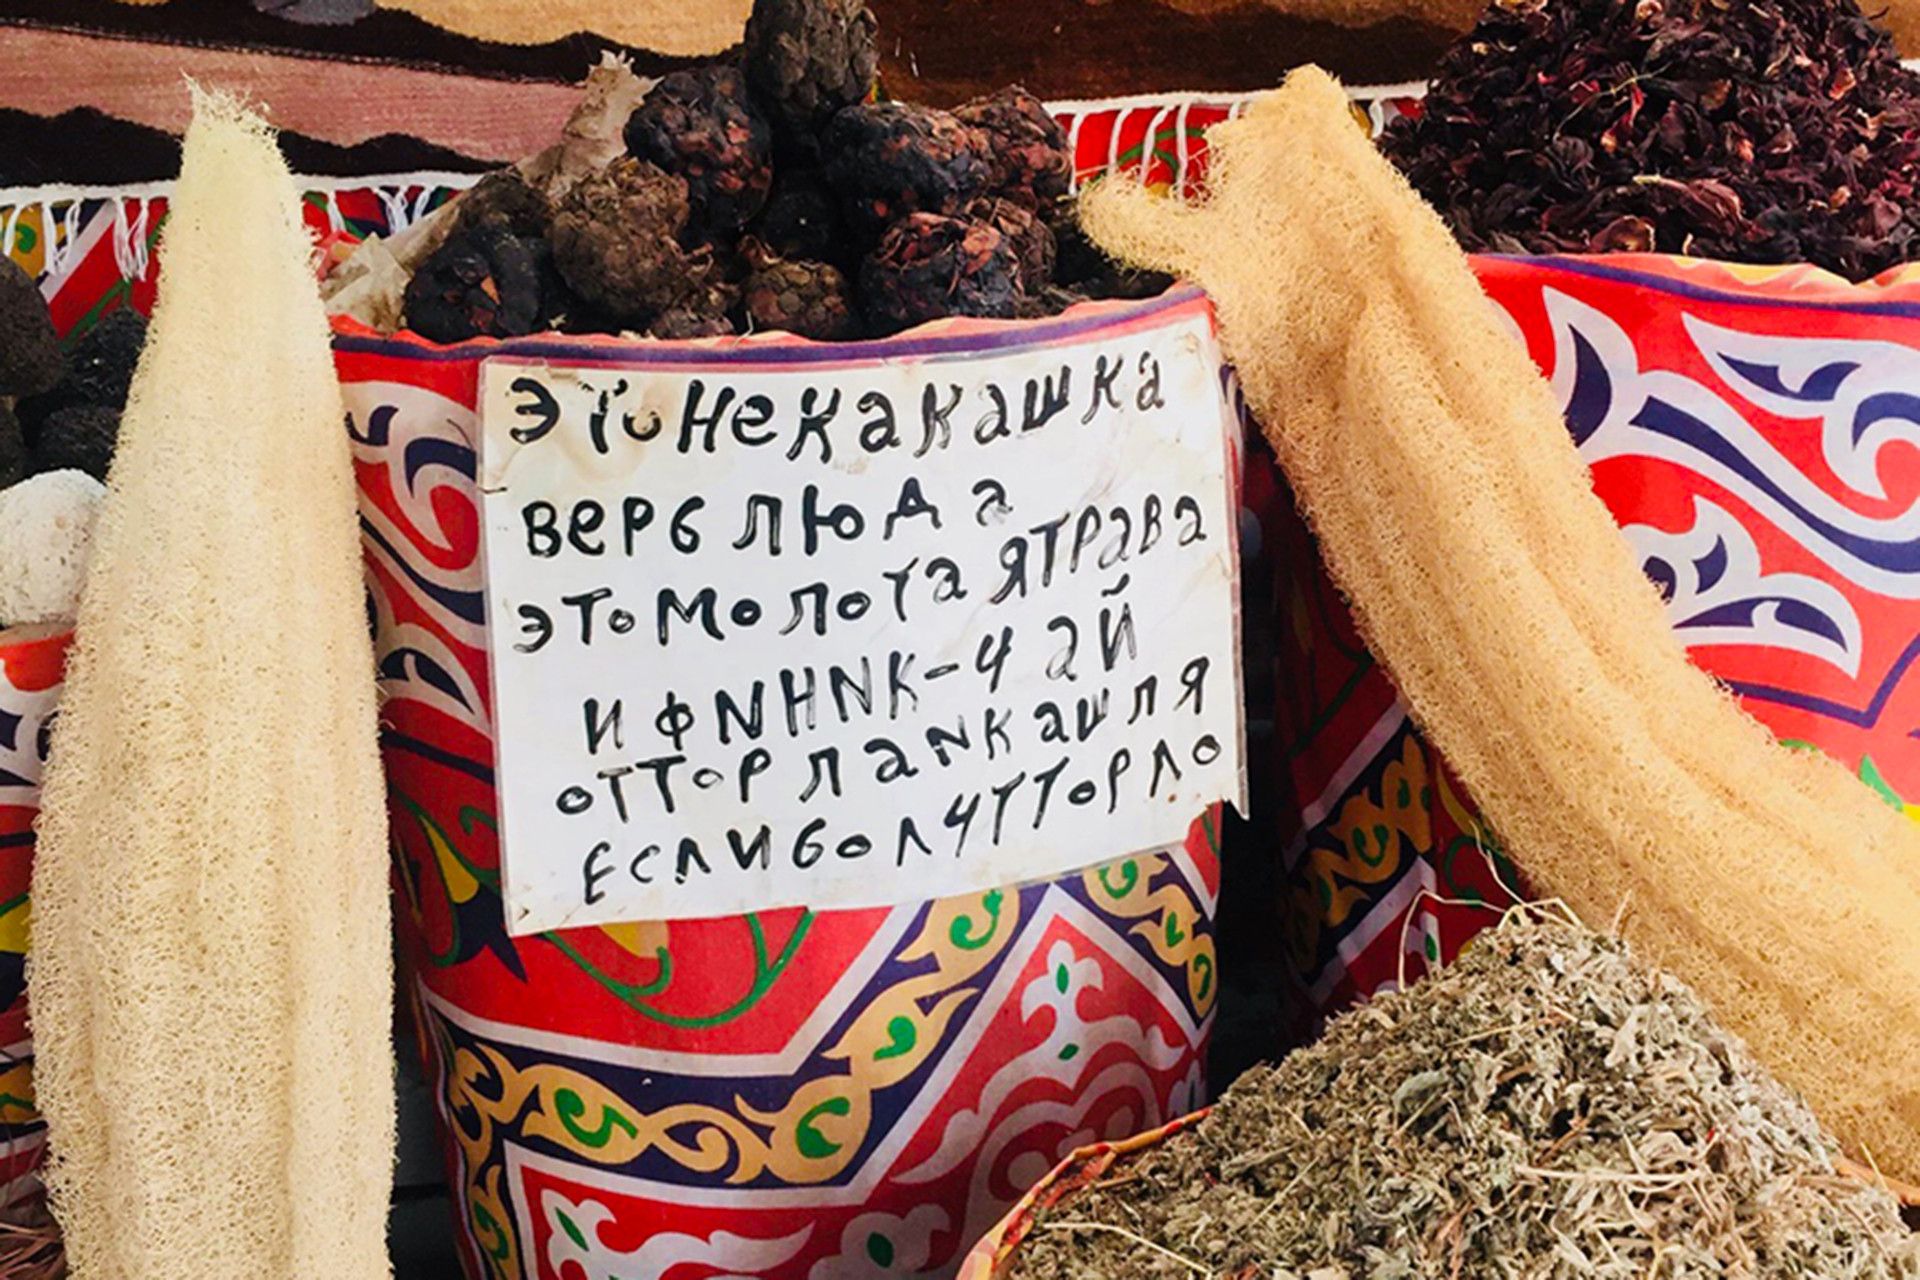 ЭтоНеКаКашка
верблюда
этомолотаятрава
иФNHNK-чай
отторлаNКашля
Если болчтторло